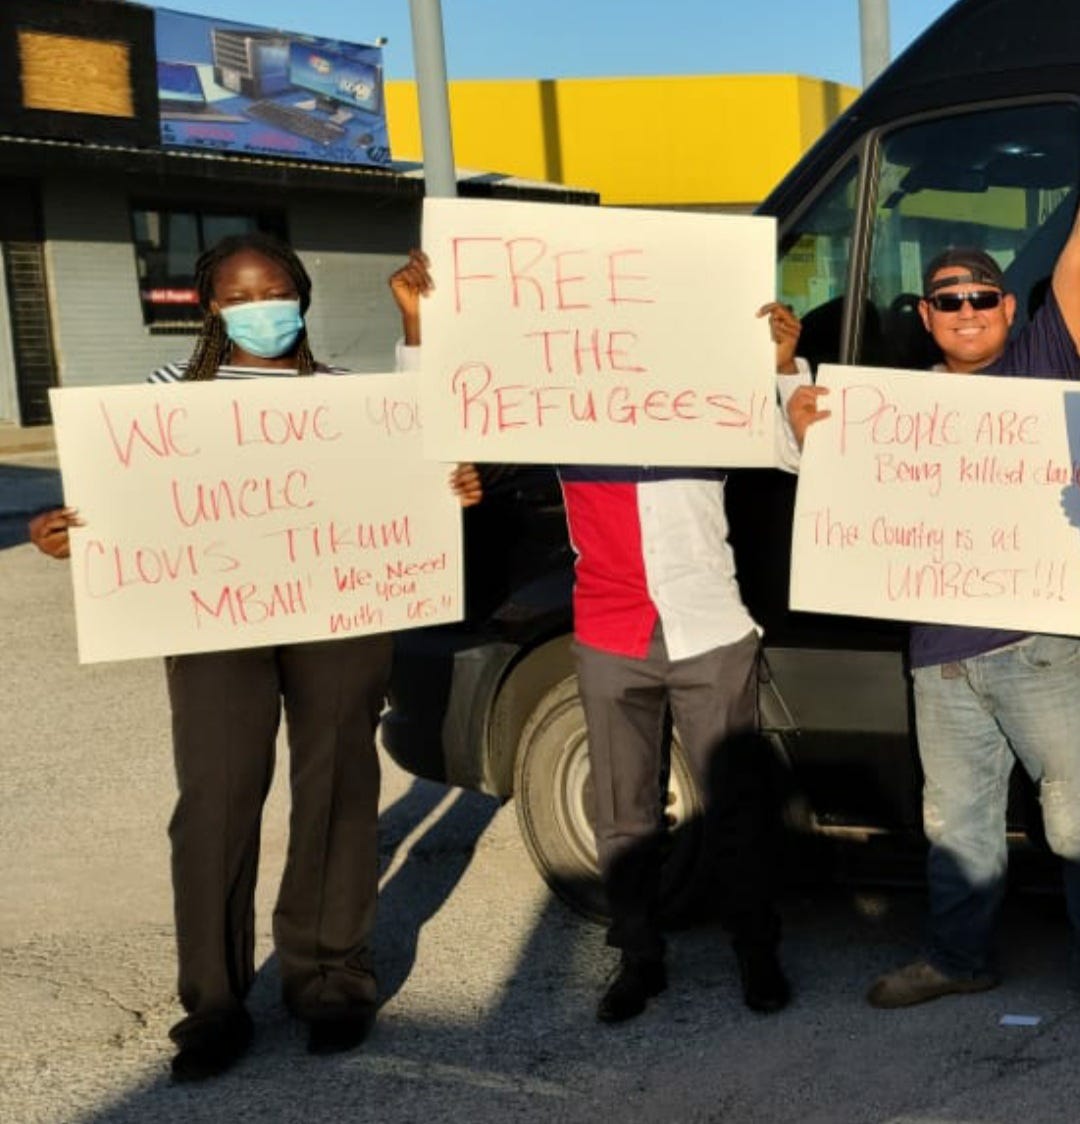 WE LOVE YOU
UNCLE
CLOVIS TIKUM
MBAH
We Need
you
with us!!
FREE
THE
REFUGEES!!
PEOPLE ARE
Being killed
The Country is at
UNREST!!!